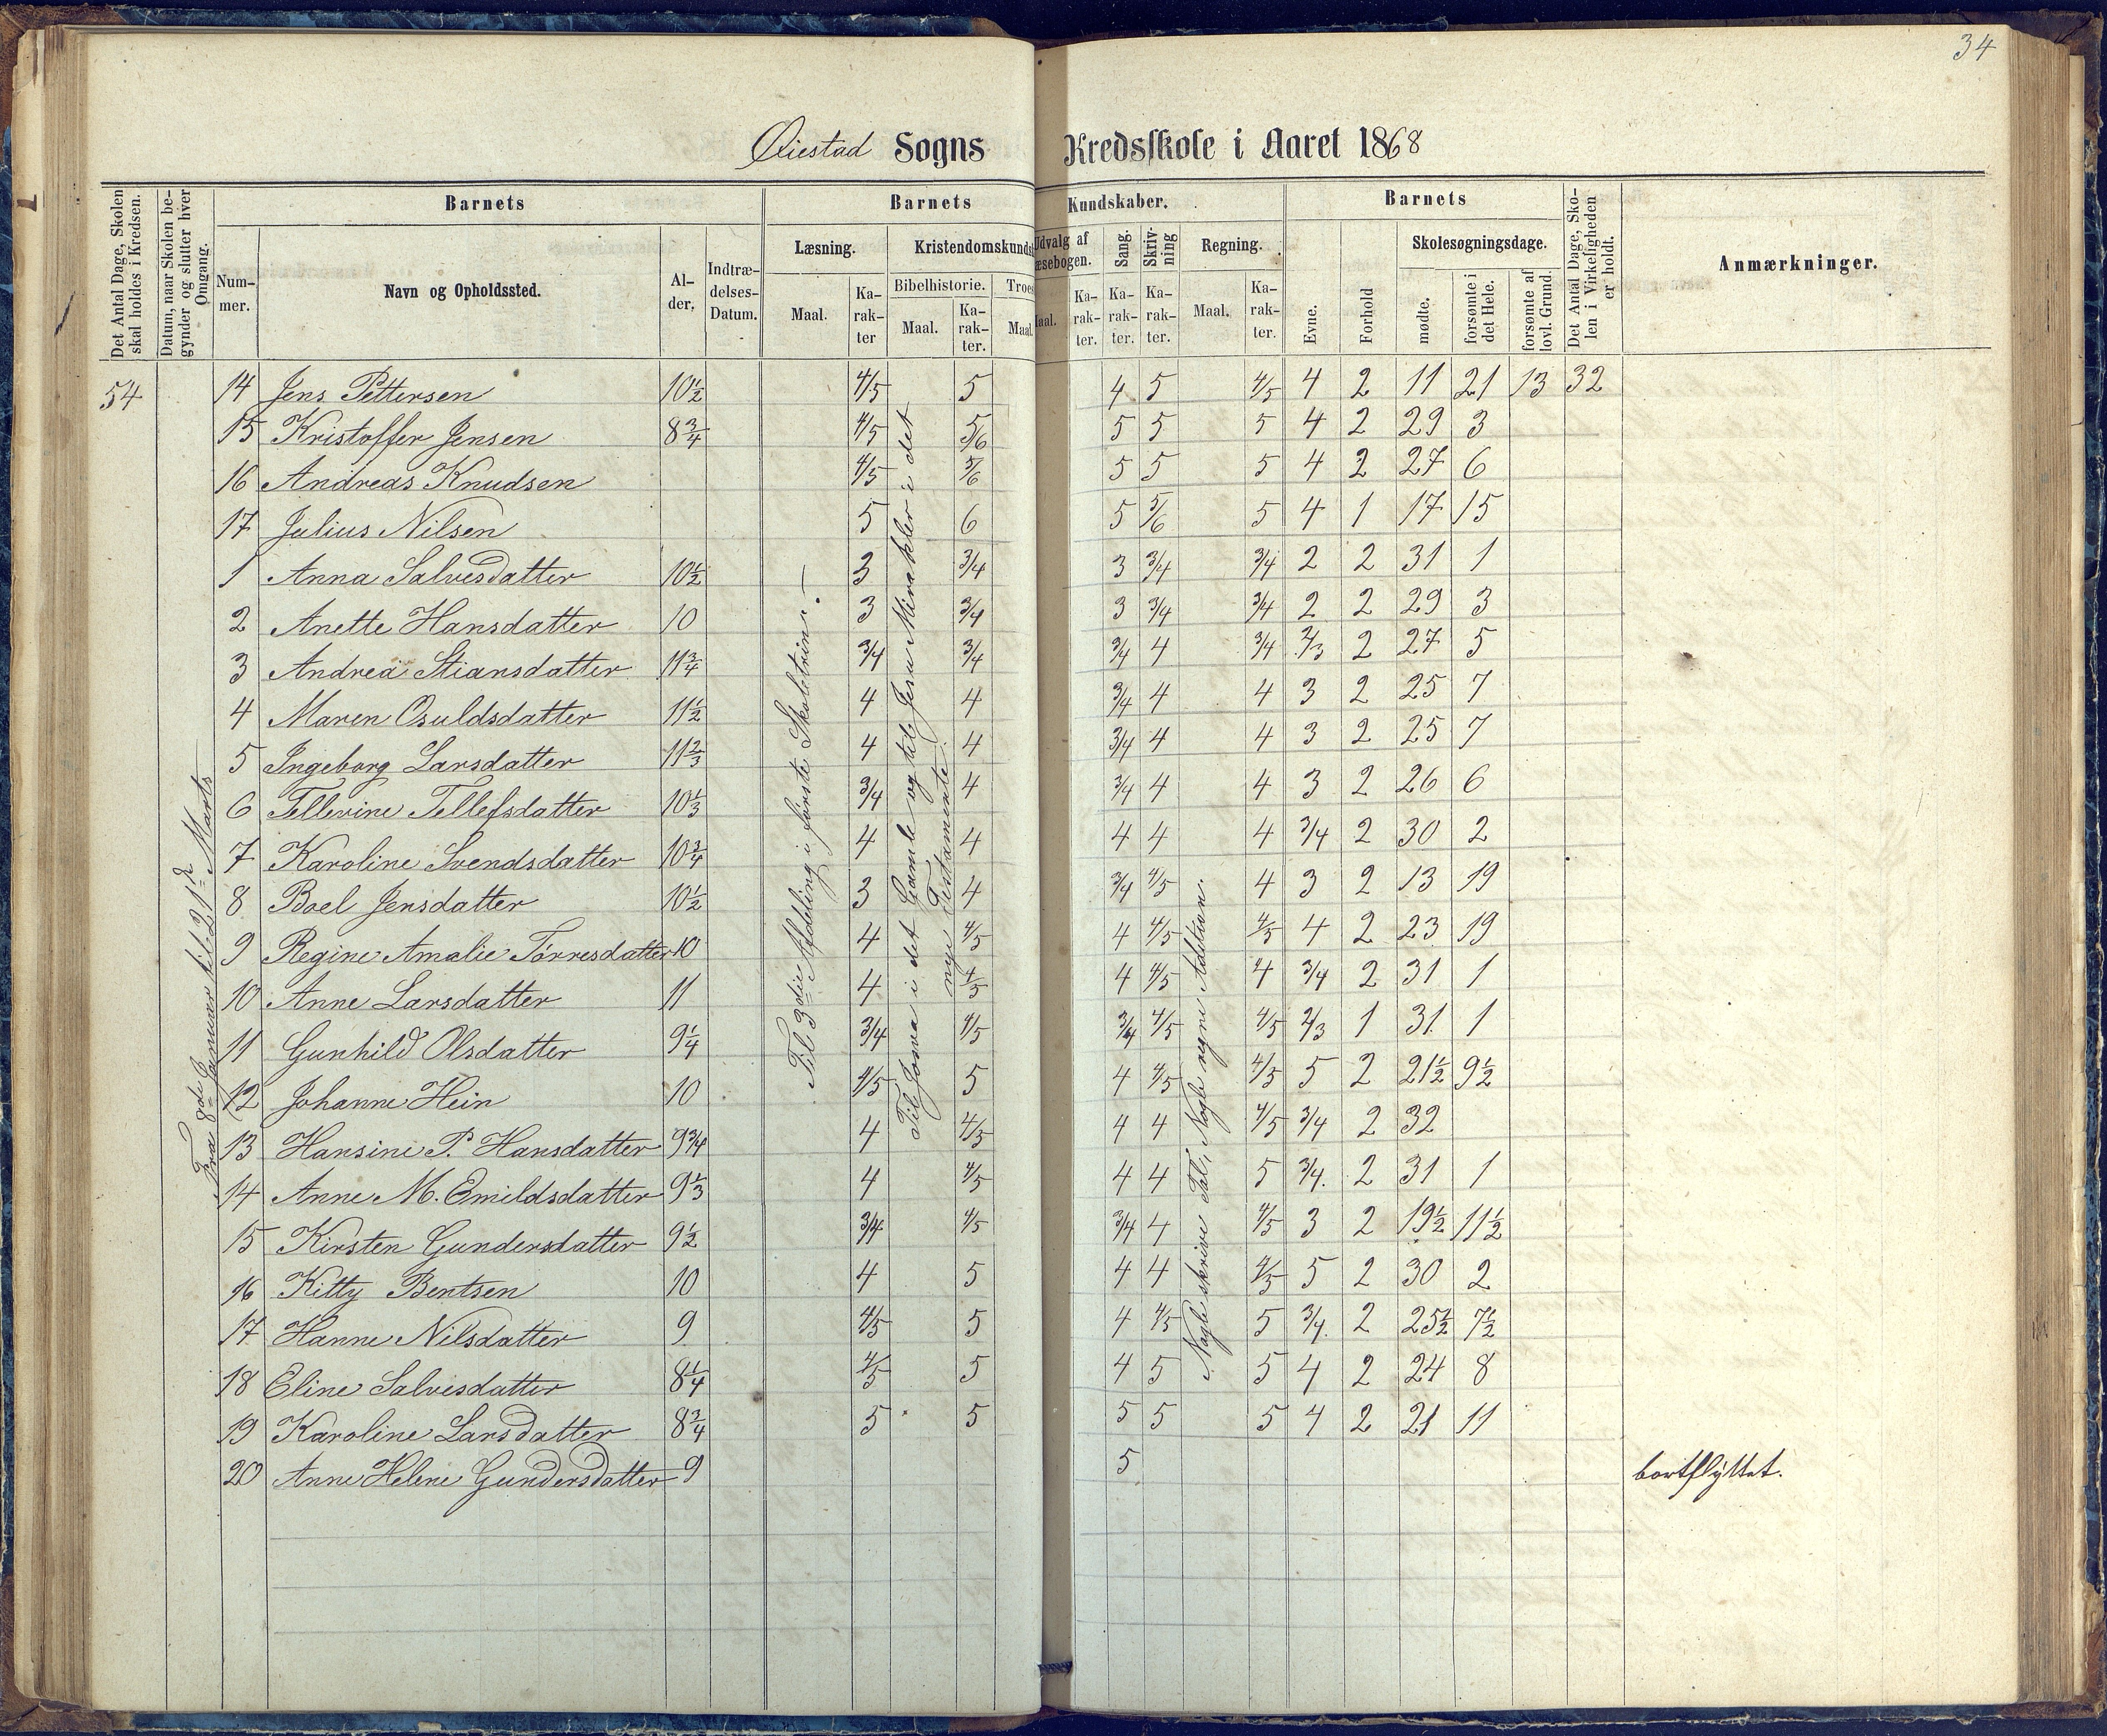 34
Øiestad Sogns Kredsskole i Aaret 1868
Det Antal Dage, Skolen skal holdes i Kredsen.
Datum, naar Skolen begynder og slutter hver Omgang.
Barnets
Nummer.
Navn og Opholdssted.
Alder.
Indtrædelses-Datum.
Barnets Kundskaber.
Læsning.
Maal.
Karakter
Kristendomskunds
Bibelhistorie.
Maal.
Karakter.
Troes
Maal.
Udvalg af
æsebogen.
Maal.
Karakter.
Sang.
Karakter.
Skrivning
Karakter.
Regning.
Maal.
Karakter.
Barnets
Evne.
Forhold
Skolesøgningsdage.
mødte.
forsømte i det Hele.
forsømte af lovl. Grund.
Det Antal Dage, Skolen i Virkeligheden er holdt.
Anmærkninger.
54 14 Jens Pettersen 10½ 4/5 5 4 5 4/5 4 2 11 21 13 32
15 Kristoffer Jensen 8¾ 4/5 5/6 5 5 5 4 2 29 3
16 Andreas Knudsen 4/5 5/6 5 5 5 4 2 27 6
17 Julius Nilsen 5 6 5 5/6 5 4 1 17 15
1 Anna Salvesdatter 10½ 3 3/4 3 3/4 3/4 2 2 31 1
2 Anette Hansdatter 10 3 3/4 3 3/4 3/4 2 2 29 3
3 Andrea Stiansdatter 11¾ 3/4 3/4 3/4 4 3/4 2/3 2 27 5
4 Maren Osuldsdatter 11½ 4 4 3/4 4 4 3 2 25 7
5 Ingeborg Larsdatter 11⅔ 4 4 3/4 4 4 3 2 25 7
6 Tellevine Tellefsdatter 10⅓ 3/4 4 3/4 4 4 3 2 26 6
7 Karoline Svendsdatter 10¾ 4 4 4 4 4 3/4 2 30 2
8 Boel Jensdatter 10½ 3 4 3/4 4/5 4 3 2 13 19
9 Regine Amalie Tørresdatter 10 4 4/5 4 4/5 4/5 4 2 23 19
10 Anne Larsdatter 11 4 4/5 4 4/5 4 3/4 2 31 1
11 Gunhild Olsdatter 9¼ 3/4 4/5 3/4 4/5 4/5 2/3 1 31 1
12 Johanne Hein 10 4/5 5 4 4/5 4/5 5 2 21½ 9½
13 Hansine P. Hansdatter 9¾ 4 4/5 4 4 4/5 3/4 2 32
14 Anne M. Emildsdatter 9⅓ 4 4/5 4 4 5 3/4. 2 31 1
15 Kirsten Gundersdatter 9½ 3/4 4/5 3/4 4 4/5 3 2 19½ 11½
16 Kitty Bentsen 10 4 5 4 4 4/5 5 2 30 2
17 Hanne Nilsdatter 9 4/5 5 4 4/5 5 3/4. 2 25½ 7½
18 Eline Salvesdatter 8¼ 4/5 5 4 5 5 4 2 24 8
19 Karoline Larsdatter 8¾ 5 5 5 5 5 4 2 21 11
20 Anne Helene Gundersdatter 9 5 bortflyttet.
Fra 8de Januar til 21de Marts
Til 3die Afdeling i første Skoletrin. —
Til Josva i det Gamle og til Jesu Mirakler i det
nye Testamente.
Nogle skrive Tal, Nogle regne Addition.